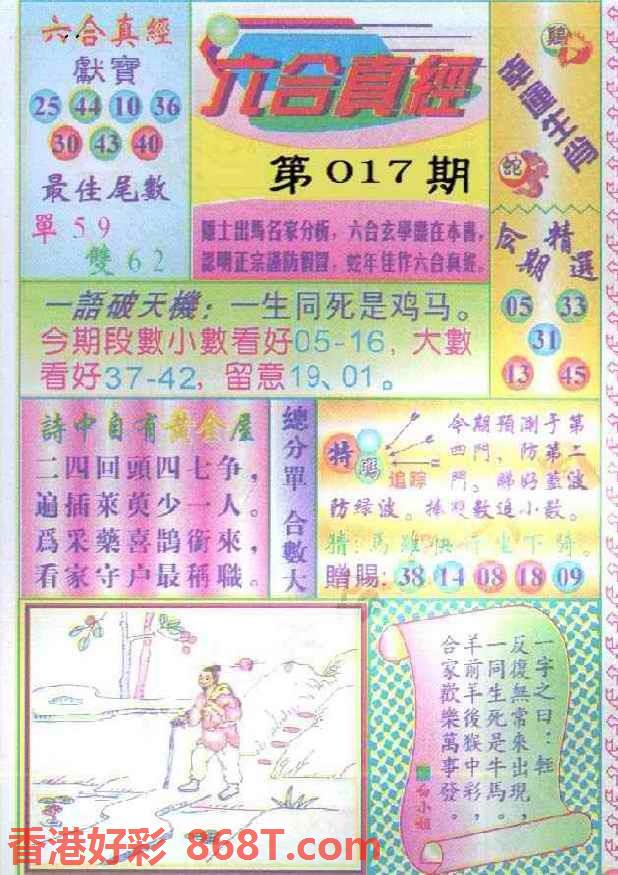 六合真經
獻寶
25 44 10 36
30 43 40
最佳尾數
單59
雙62
六合真經
第017期
隱士出馬名家分析，六合玄學盡在本書，
認明正宗謹防假冒，蛇年佳作六合真經。
幸運生肖
鷄
蛇
今期精選
05 33
31
13 45
一語破天機：一生同死是鸡马。
今期段數小數看好05-16，大數
看好37-42，留意19、01。
詩中自有黃金屋
二四回頭四七争，
遍插萊萸少一人。
爲采藥喜鵲銜來，
看家守户最稱職。
總分單 合數大
特碼
追踪
今期預測于第
四門，防第二
門。睇好藍波
防绿波。
數追小數。
猜：馬
坐下騎。
贈賜：38 14 08 18 09
一字之曰：輕
反復無常來出現，
一同生死是牛馬。
羊前羊後猴中彩，
合家歡樂萬事發。
白小姐
香港好彩 868T.com